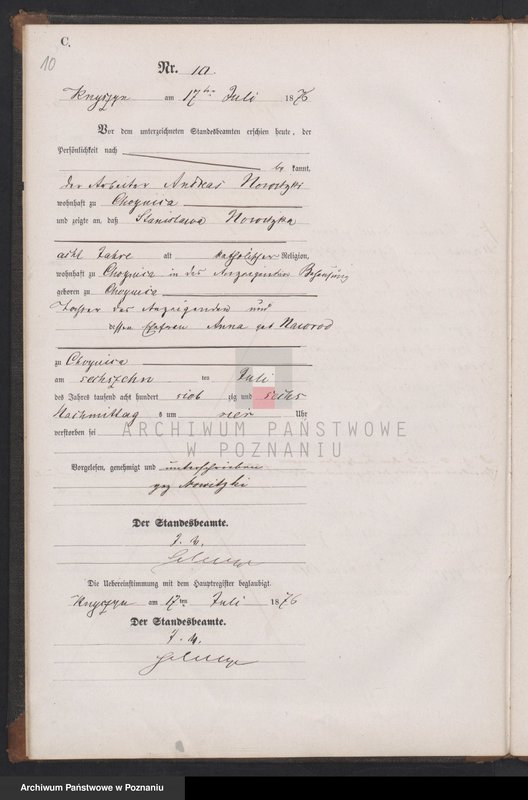 C.
10
Nr. 10.
Knyszyn am 17ten Juli 1876
Vor dem unterzeichneten Standesbeamten erschien heute, der
Persönlichkeit nach
be kannt,
der Arbeiter Andreas Nowitzki
wohnhaft zu Choynica
und zeigte an, daß Stanislawa Nowitzka
acht Jahre alt katholischer Religion,
wohnhaft zu Choynica in des Anzeigenden Behausung
geboren zu Choynica
Tochter des Anzeigenden und
dessen Ehefrau Anna geb Nawrod
zu Choynica
am sechszehn ten Juli
des Jahres tausend acht hundert sieb zig und sechs
Nachmittag s um vier Uhr
verstorben sei
Vorgelesen, genehmigt und unterschrieben
gez Nowitzki
Der Standesbeamte.
J. V.
Die Uebereinstimmung mit dem Hauptregister beglaubigt.
Knyszyn am 17ten Juli 1876
Der Standesbeamte.
J. V.
ARCHIWUM PAŃSTWOWE
W POZNANIU
Archiwum Państwowe w Poznaniu